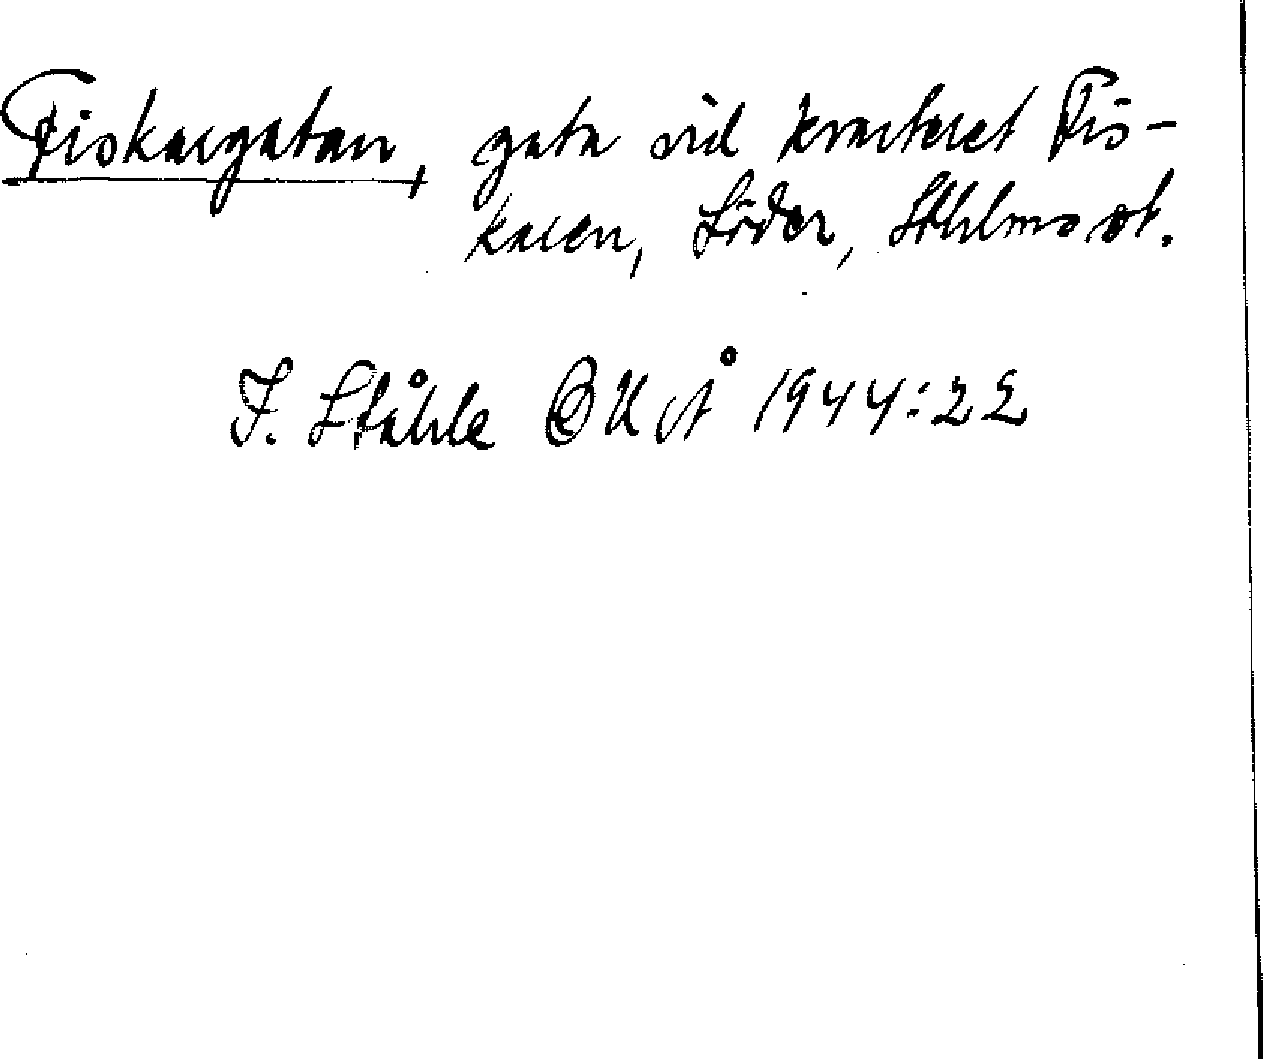 Fiskargatan, gata vid kvarteret Fis-
karen, Söder, Sthlms st.
F. Ståhle 1944:22